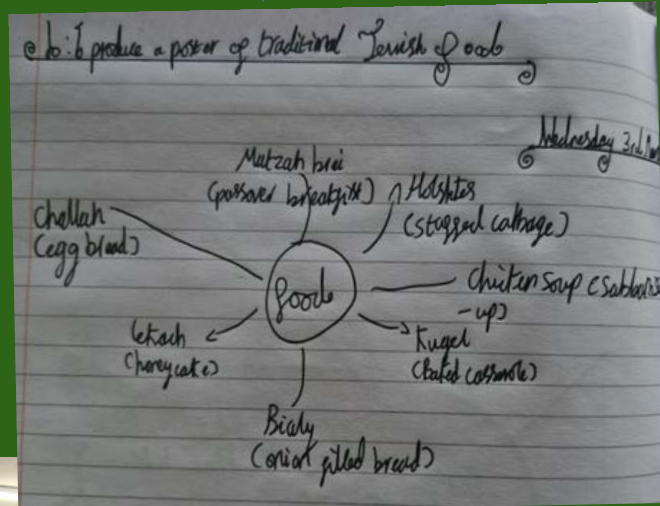 L.O: To produce a poster of traditional Jewish food
Wednesday 3rd
Matzah brei
(passover breakfast)
Holishkes
(stuffed cabbage)
Challah
(egg bread)
food
Chicken soup (sabbath s
-up)
Lekach
(honeycake)
Kugel
(baked casserole)
Bialy
(onion filled bread)